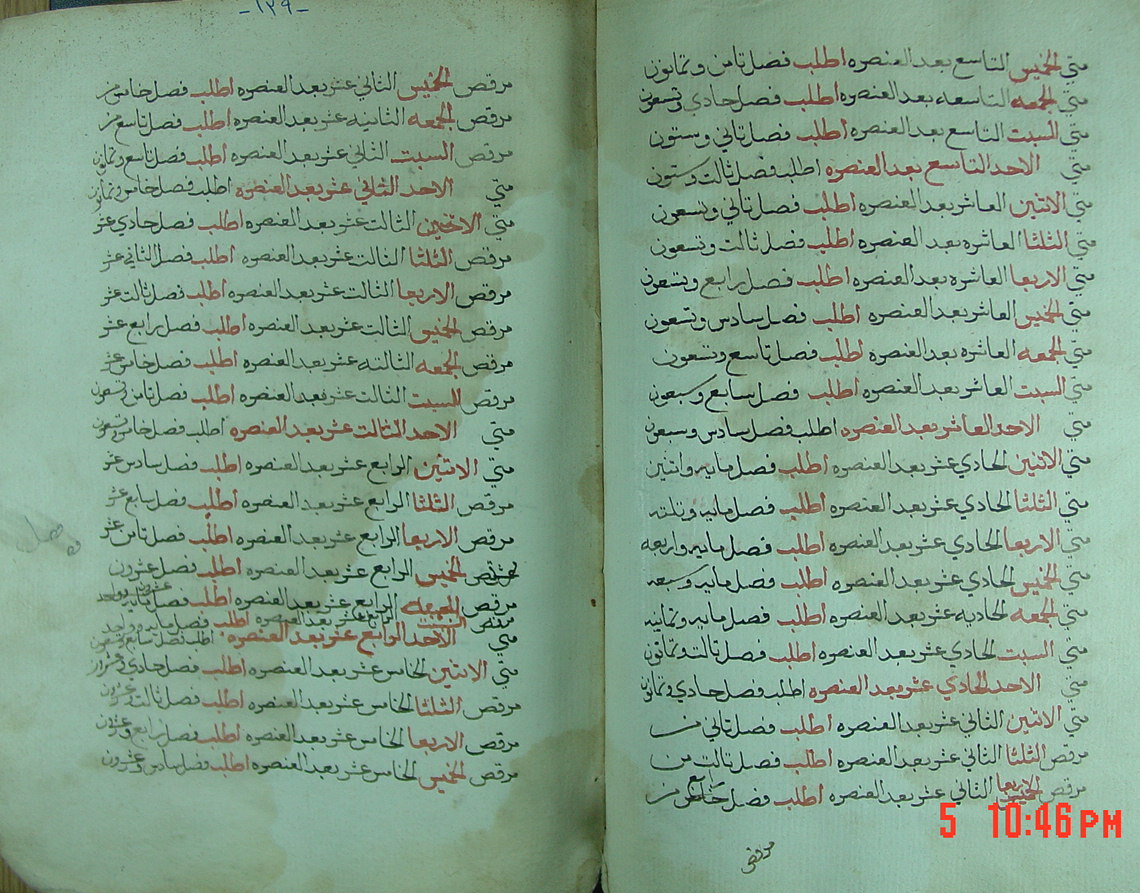 متي الخميس التاسع بعد العنصره اطلب فصل ثامن وثمانون
متي الجمعه التاسعه بعد العنصره اطلب فصل حادي وتسعون
متي السبت التاسع بعد العنصره اطلب فصل ثاني وستون
متي الاحد التاسع بعد العنصره اطلب فصل ثالث وستون
متي الاثنين العاشر بعد العنصره اطلب فصل ثاني وتسعون
متي الثلثا العاشره بعد العنصره اطلب فصل ثالث وتسعون
متي الاربعا العاشره بعد العنصره اطلب فصل رابع وتسعون
متي الخميس العاشر بعد العنصره اطلب فصل سادس وتسعون
متي الجمعه العاشره بعد العنصره اطلب فصل تاسع وتسعون
متي السبت العاشر بعد العنصره اطلب فصل سابع وسبعون
متي الاحد العاشر بعد العنصره اطلب فصل سادس وسبعون
متي الاثنين الحادي عشر بعد العنصره اطلب فصل مايه واثنين
متي الثلثا الحادي عشر بعد العنصره اطلب فصل مايه وثلثه
متي الاربعا الحادي عشر بعد العنصره اطلب فصل مايه واربعه
متي الخميس الحادي عشر بعد العنصره اطلب فصل مايه وسبعه
متي الجمعه الحاديه عشر بعد العنصره اطلب فصل مايه وثمانيه
متي السبت الحادي عشر بعد العنصره اطلب فصل ثالث وثمانون
متي الاحد الحادي عشر بعد العنصره اطلب فصل حادي وثمانون
متي الاثنين الثاني عشر بعد العنصره اطلب فصل ثاني من
مرقص الثلثا الثاني عشر بعد العنصره اطلب فصل ثالث من
مرقص الاربعا الثاني عشر بعد العنصره اطلب فصل رابع من
مرقص
-١٢٩-
مرقص الخميس الثاني عشر بعد العنصره اطلب فصل خامس من
مرقص الجمعه الثانيه عشر بعد العنصره اطلب فصل تاسع من
مرقص السبت الثاني عشر بعد العنصره اطلب فصل تاسع وثمانون
متي الاحد الثاني عشر بعد العنصره اطلب فصل خامس وثمانون
متي الاثنين الثالث عشر بعد العنصره اطلب فصل حادي عشر
مرقص الثلثا الثالث عشر بعد العنصره اطلب فصل الثاني عشر
مرقص الاربعا الثالث عشر بعد العنصره اطلب فصل ثالث عشر
مرقص الخميس الثالث عشر بعد العنصره اطلب فصل رابع عشر
مرقص الجمعه الثالثه عشر بعد العنصره اطلب فصل خامس عشر
مرقص السبت الثالث عشر بعد العنصره اطلب فصل ثامن وتسعون
متي الاحد الثالث عشر بعد العنصره اطلب فصل خامس وتسعون
متي الاثنين الرابع عشر بعد العنصره اطلب فصل سادس عشر
مرقص الثلثا الرابع عشر بعد العنصره اطلب فصل سابع عشر
مرقص الاربعا الرابع عشر بعد العنصره اطلب فصل ثامن عشر
مرقص الخميس الرابع عشر بعد العنصره اطلب فصل عشرون
مرقص الجمعه الرابع عشر بعد العنصره اطلب فصل
السبت الرابع عشر بعد العنصره اطلب فصل مايه وواحد
متي الاحد الرابع عشر بعد العنصره اطلب فصل سابع وتسعون
متي الاثنين الخامس عشر بعد العنصره اطلب فصل حادي وعشرون
مرقص الثلثا الخامس عشر بعد العنصره اطلب فصل ثالث وعشرون
مرقص الاربعا الخامس عشر بعد العنصره اطلب فصل رابع وعشرون
مرقص الخميس الخامس عشر بعد العنصره اطلب فصل سادس وعشرون
5 10:46 PM